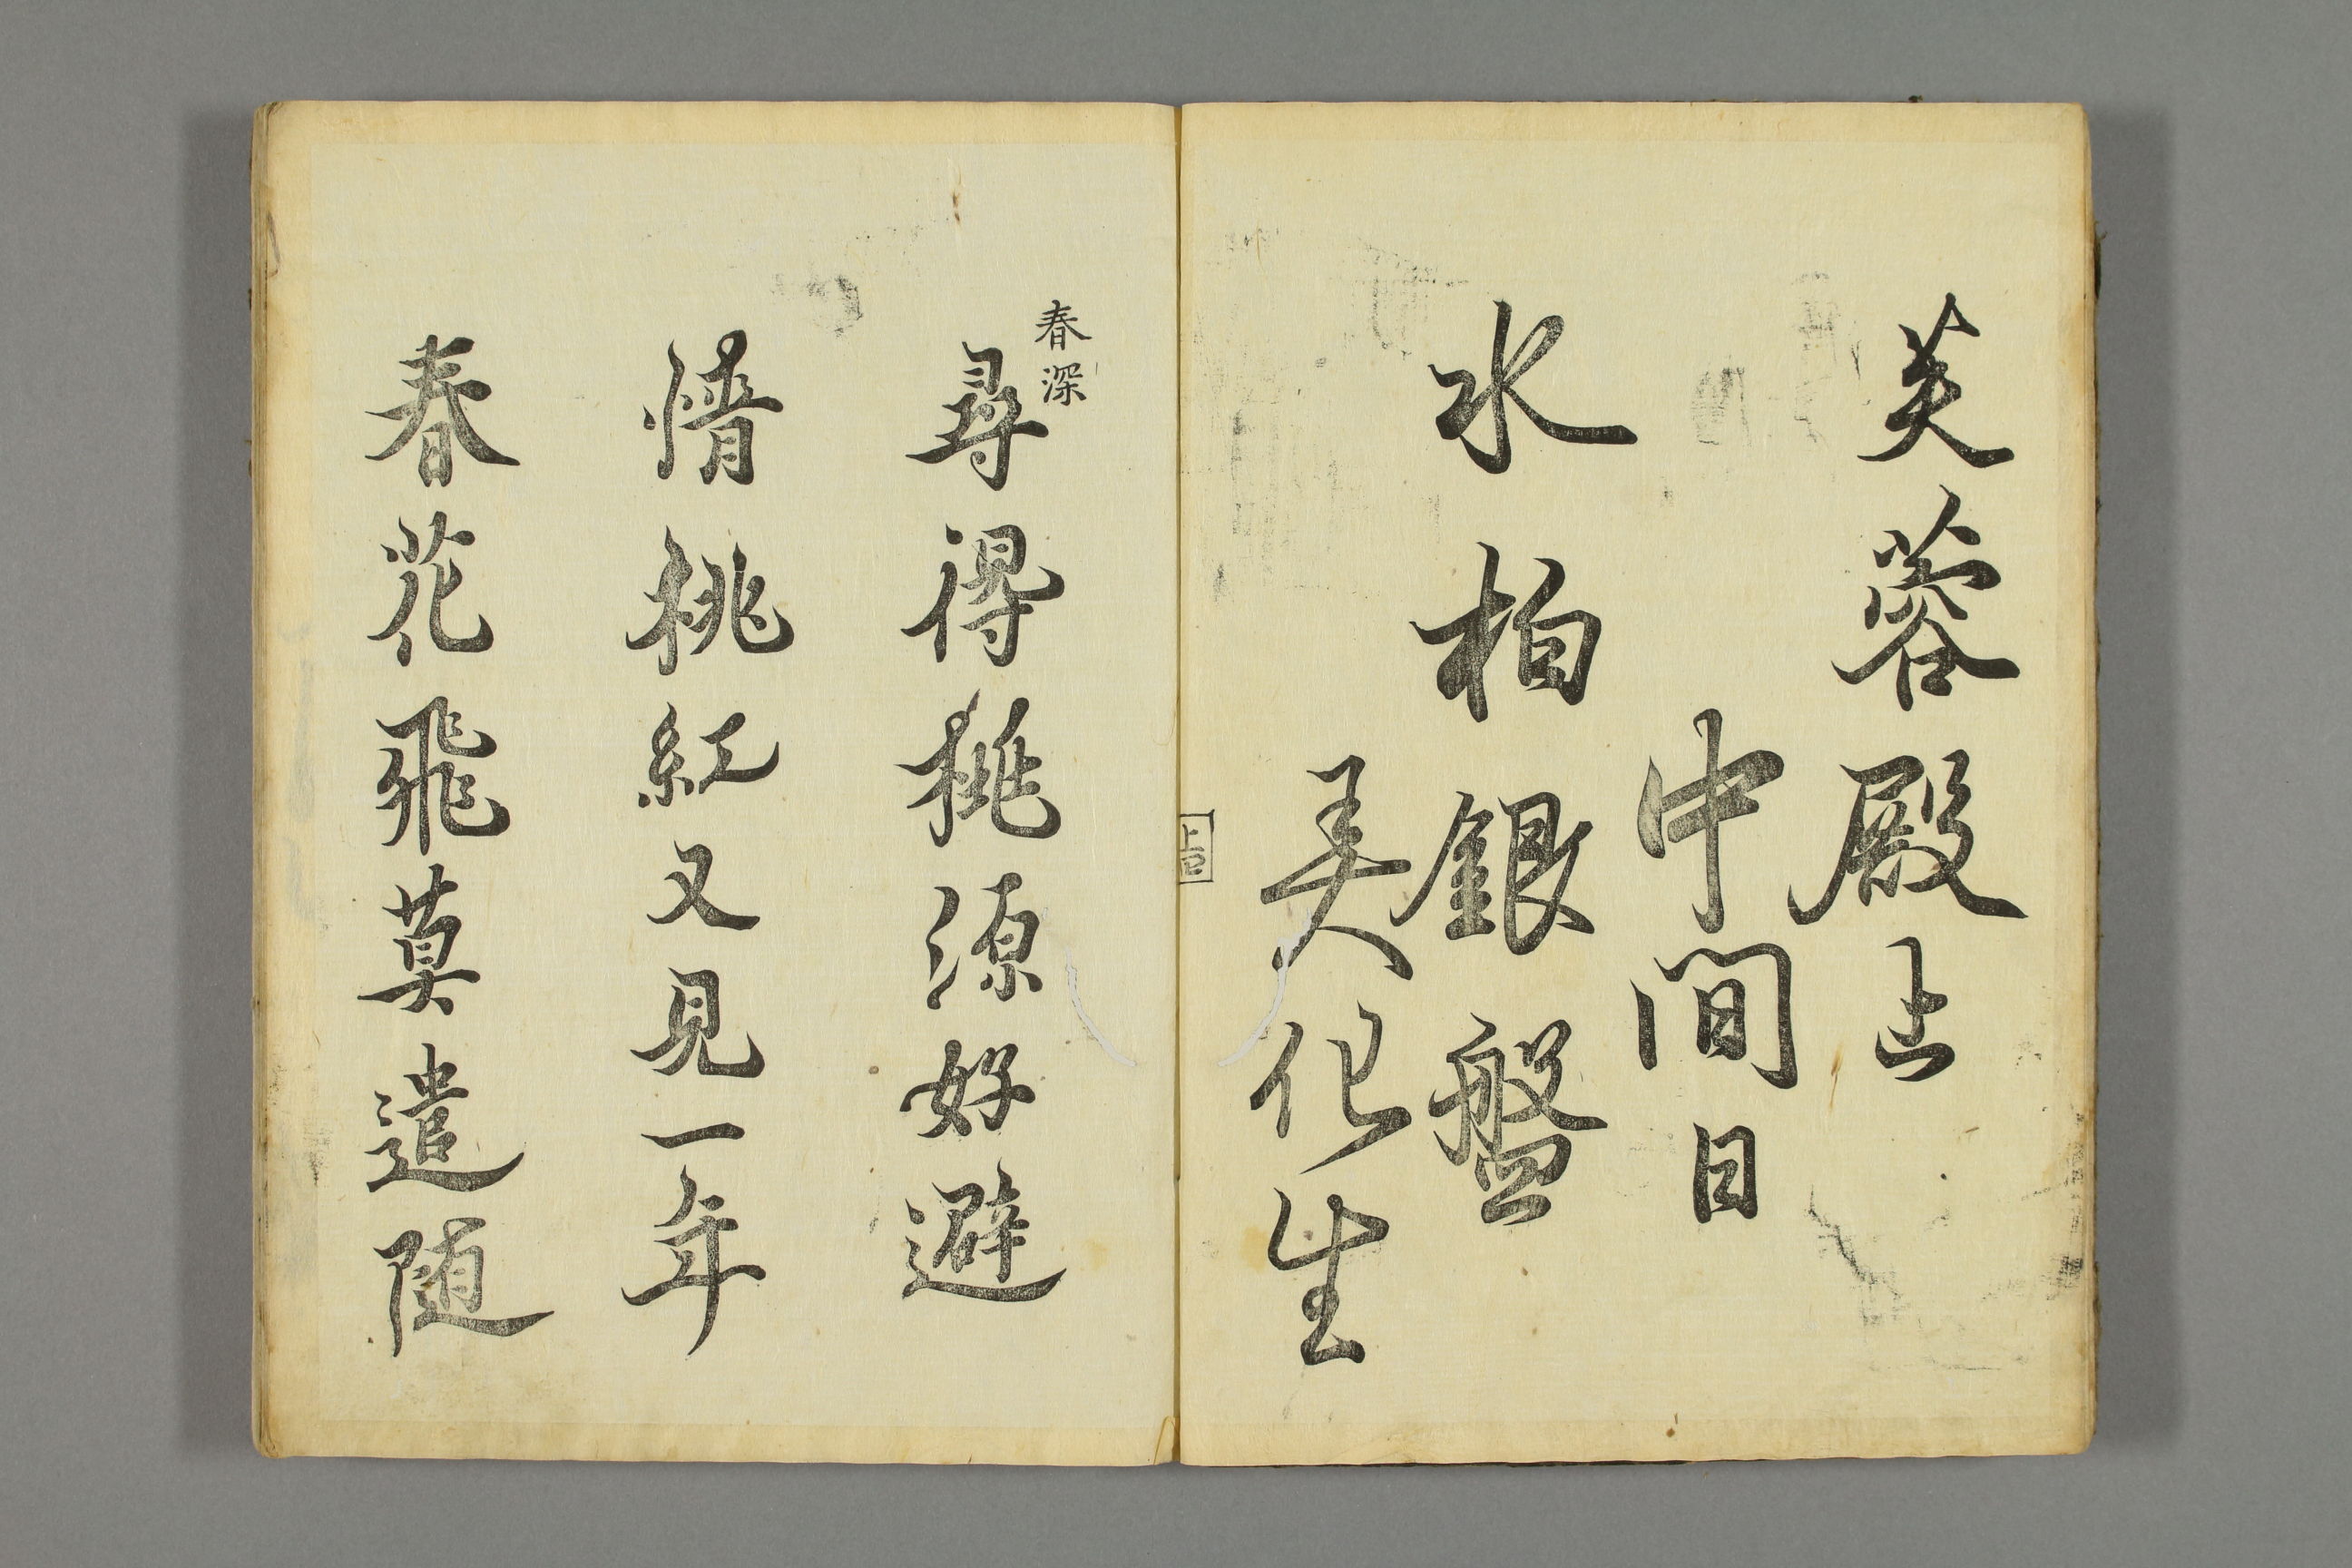 芙蓉殿上
中間日
水柏銀盤
美化生
上吕
春深
尋得桃源好避
情桃紅又見一年
春花飛莫遣随